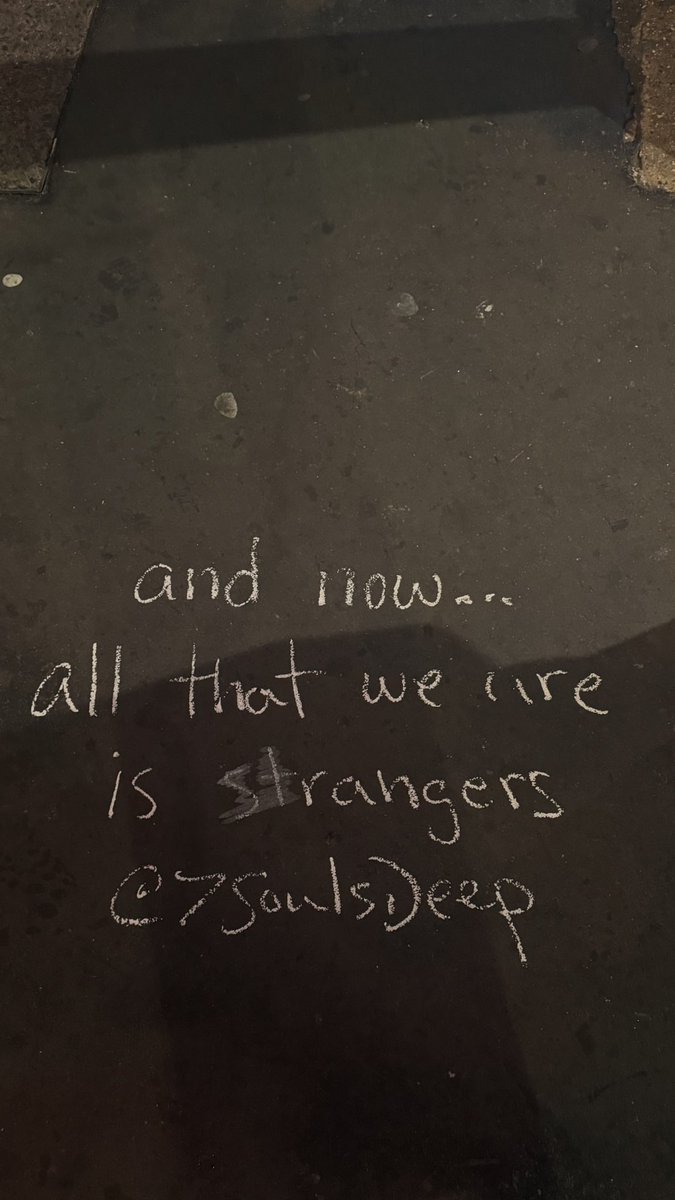 and now...
all that we are
is strangers
@7SoulsDeep